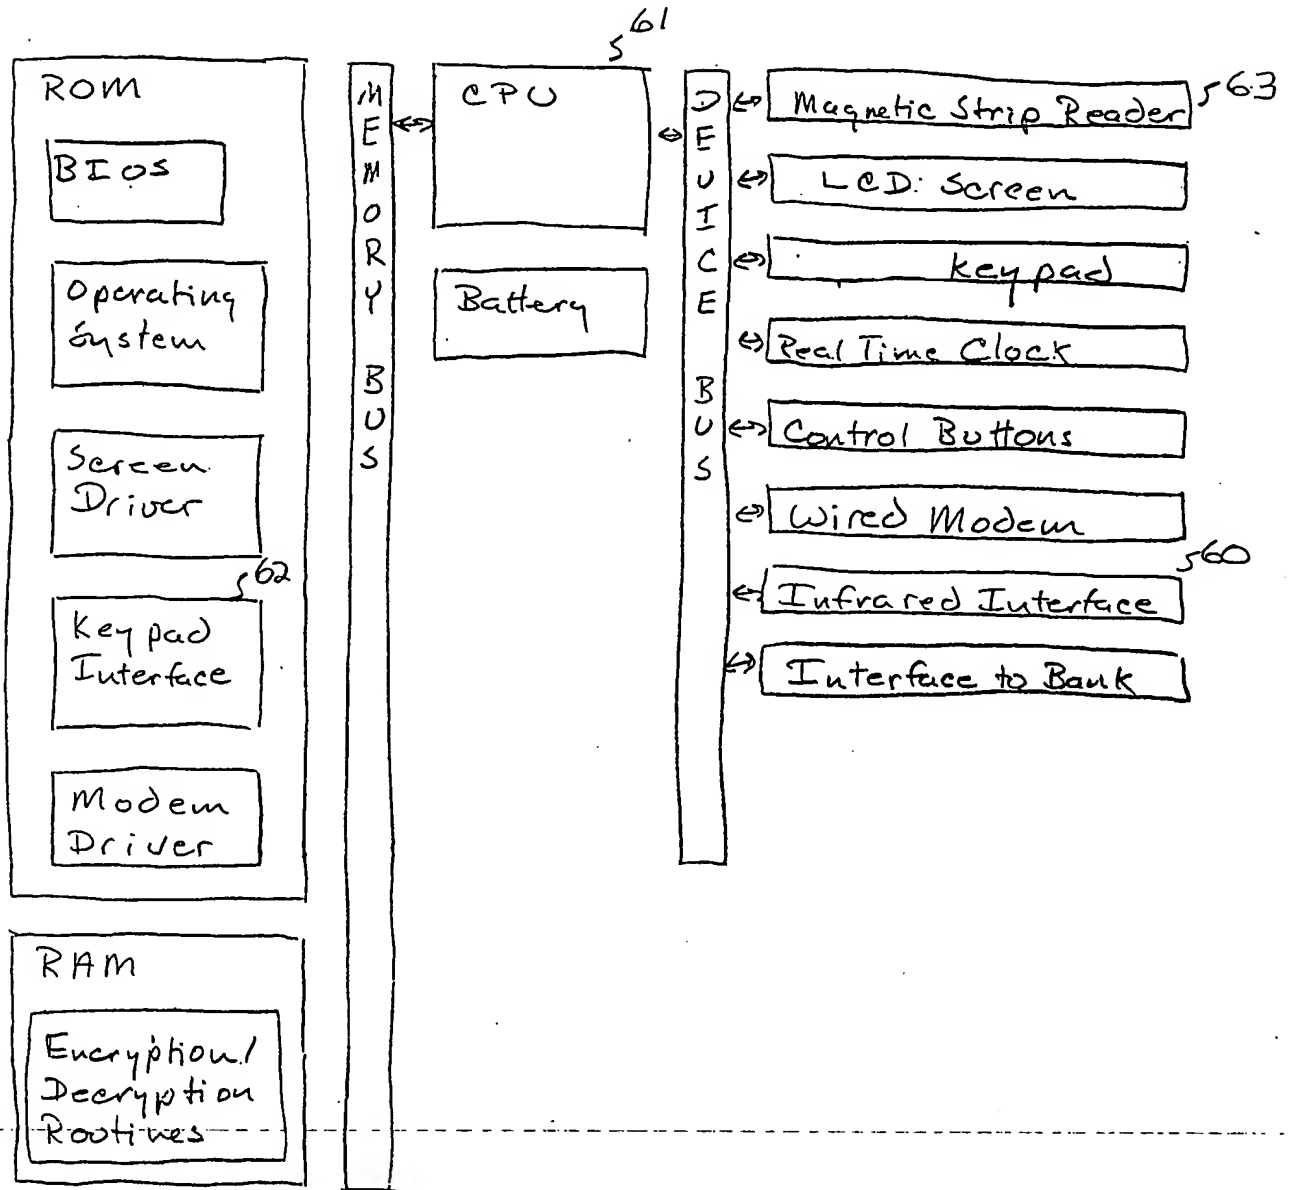 ROM
BIOS
Operating
System
Screen
Driver
62
Keypad
Interface
Modem
Driver
RAM
Encryption/
Decryption
Routines
MEMORY BUS
61
CPU
Battery
DEVICE BUS
63
Magnetic Strip Reader
LCD Screen
Keypad
Real Time Clock
Control Buttons
Wired Modem
60
Infrared Interface
Interface to Bank